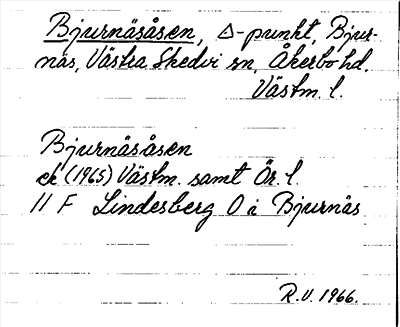 Bjurnäsåsen, Δ-punkt, Bjur-
näs, Västra Skedvi sn, Åkerbo hd.
Västm. l.
Bjurnäsåsen
ek (1965) Västm. samt Ör. l.
11 F Lindesberg O i Bjurnäs
R.V. 1966.